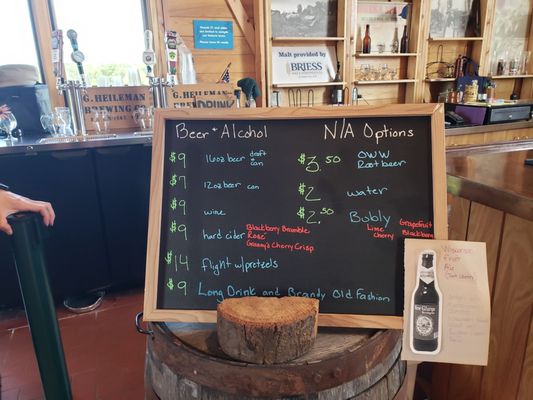 Malt provided by
BRIESS
G. HEILEMAN
BREWING CO
Beer + Alcohol
$9 16oz beer draft can
$7 12oz beer can
$9 wine
$9 hard cider Blackberry Bramble
Rose'
Granny's Cherry Crisp
$14 flight w/pretzels
$9 Long Drink and Brandy Old Fashion
N/A Options
$3.50 OWW
Root beer
$2 water
$2.50 Bubly Grapefruit
Lime Blackberry
cherry
Wisconsin
Fruit